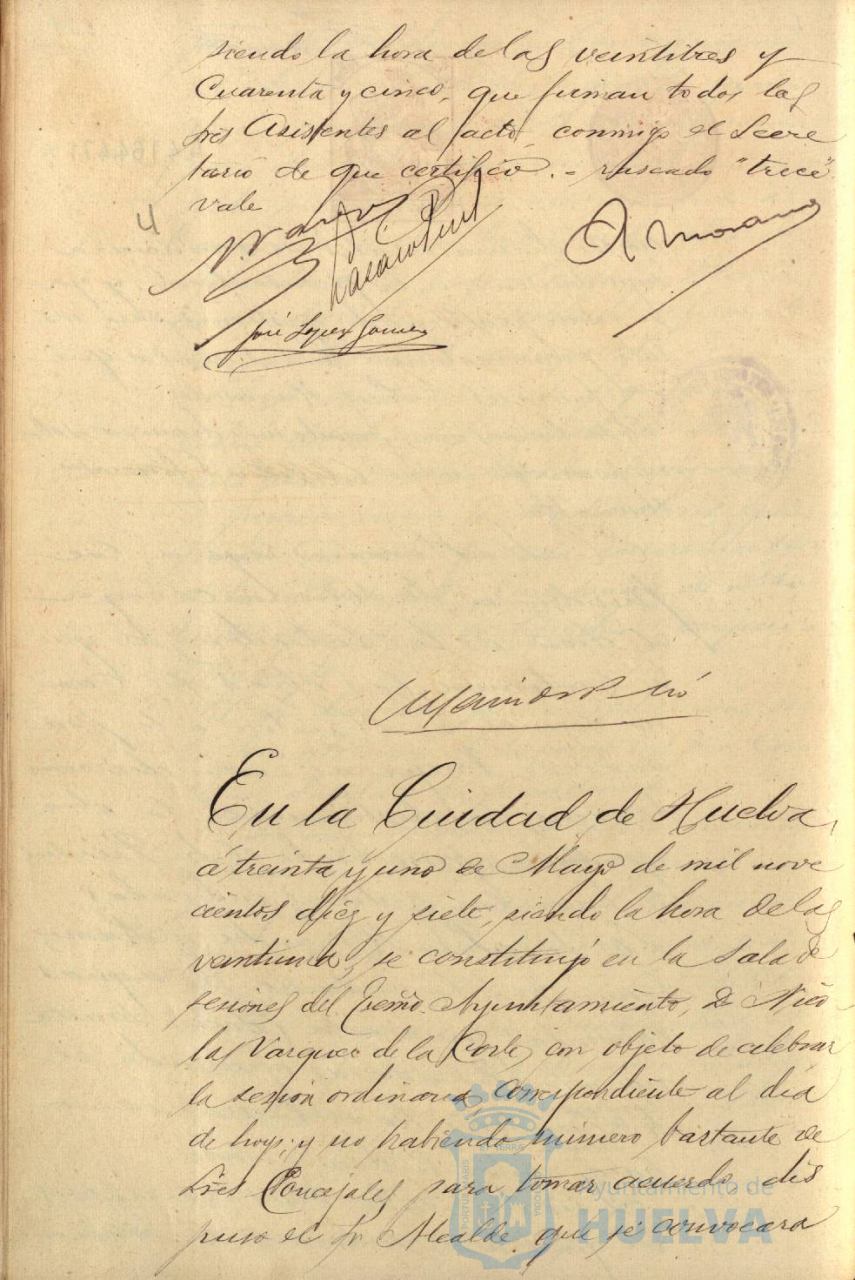 siendo la hora de las veintitres y
Cuarenta y cinco, que firman todos los
Sres Asistentes al acto, conmigo el Secre
tario de que certifico. - rascado "trece"
vale
4
A Moreno
José Lopez Gomez
En la Ciudad de Huelva,
á treinta y uno de Mayo de mil nove
cientos diez y siete, siendo la hora de las
veintiuna, se constituyó en la Sala de
sesiones del Excmo. Ayuntamiento, D. Nico
las Vazquez de la Corte, con objeto de celebrar
la sesion ordinaria correspondiente al dia
de hoy; y no habiendo número bastante de
Sres Concejales para tomar acuerdo, dis
puso el Sr Alcalde que se convocara
Ayuntamiento de
HUELVA